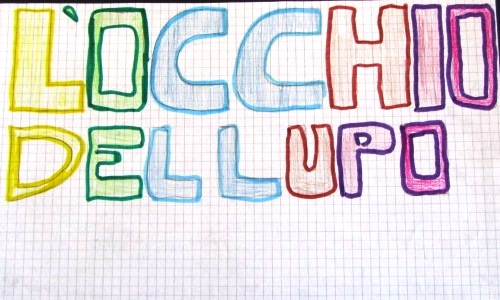 L'OCCHIO
DEL LUPO